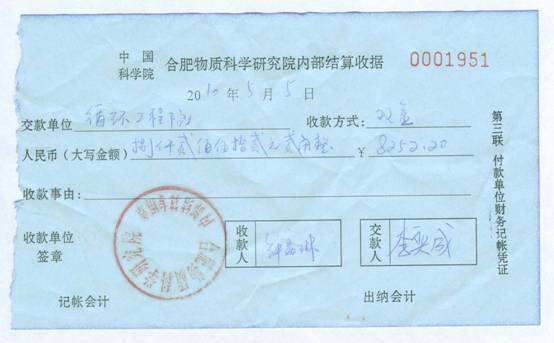 中国
科学院
合肥物质科学研究院内部结算收据 0001951
2010年5月5日
交款单位 循环工程院 收款方式:
人民币(大写金额) 捌仟贰佰伍拾贰元贰角整 ¥ 8252.20
收款事由:
收款单位
签章
收款人
交款人 李奕成
记帐会计 出纳会计
第三联 付款单位财务记帐凭证
合肥物质科学研究院